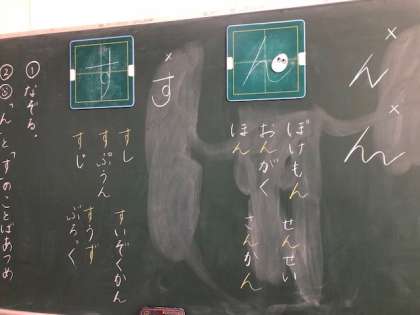 ×
ん
×
ん
ん
ぽけもん　せんせい
おんがく　さんかん
ほん
×
す
す
すし　すいぞくかん
すぷうん
すじ
①なぞる。
②「ん」と「す」のことばあつめ